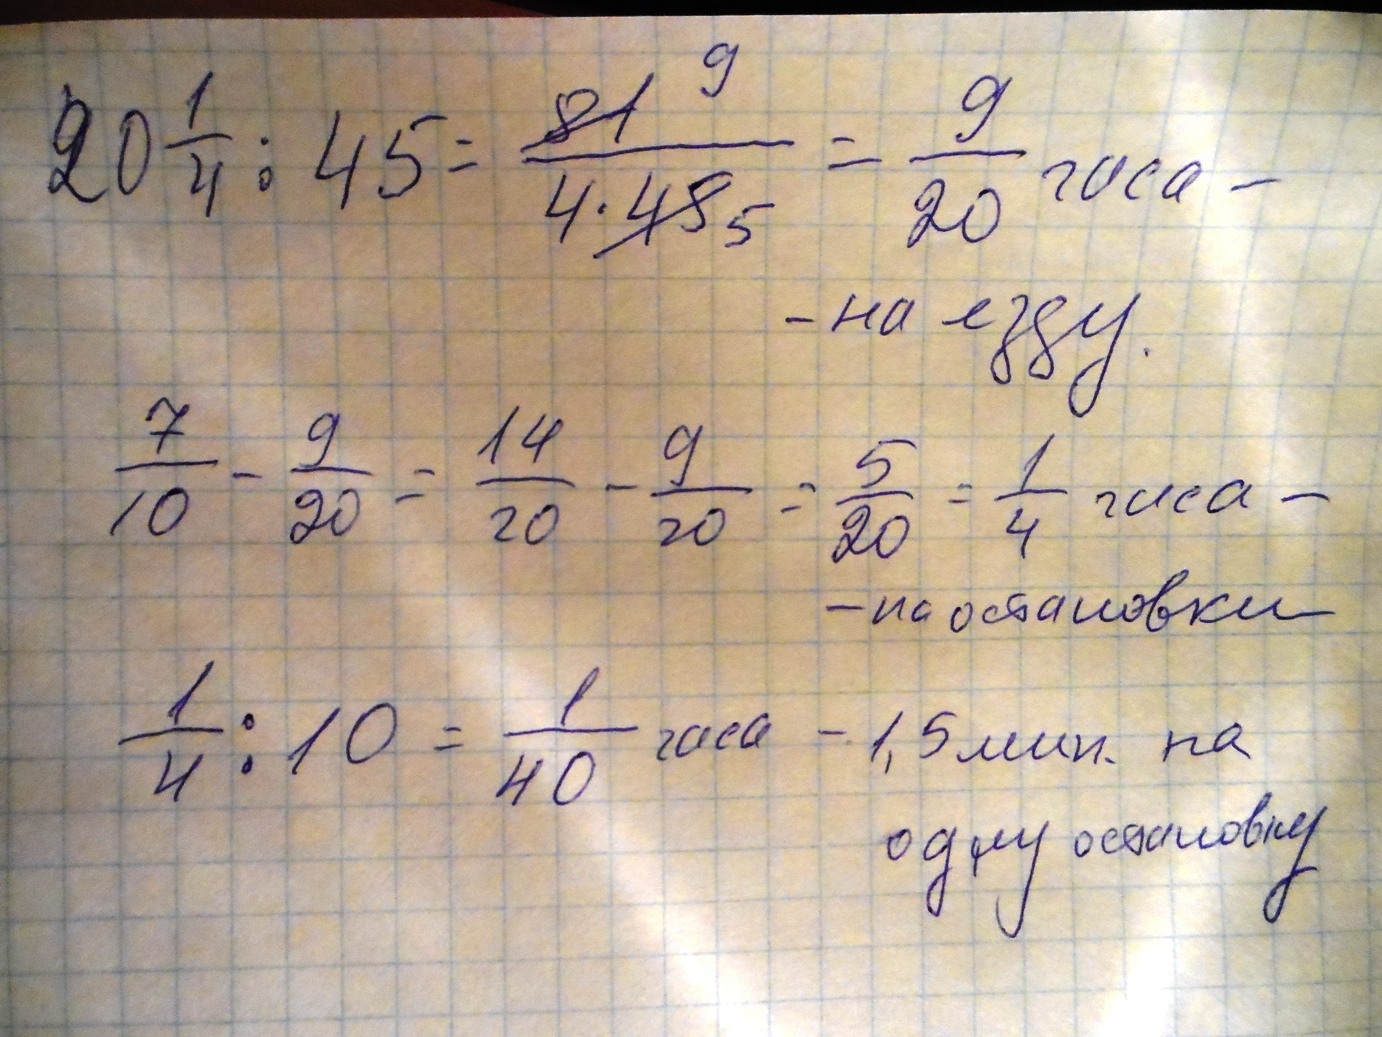 20 1/4 : 45 = 81 9 / 4 · 45 5 = 9/20 часа –
– на езду.
7/10 – 9/20 = 14/20 – 9/20 = 5/20 = 1/4 часа –
– на остановки
1/4 : 10 = 1/40 часа – 1,5 мин. на
одну остановку